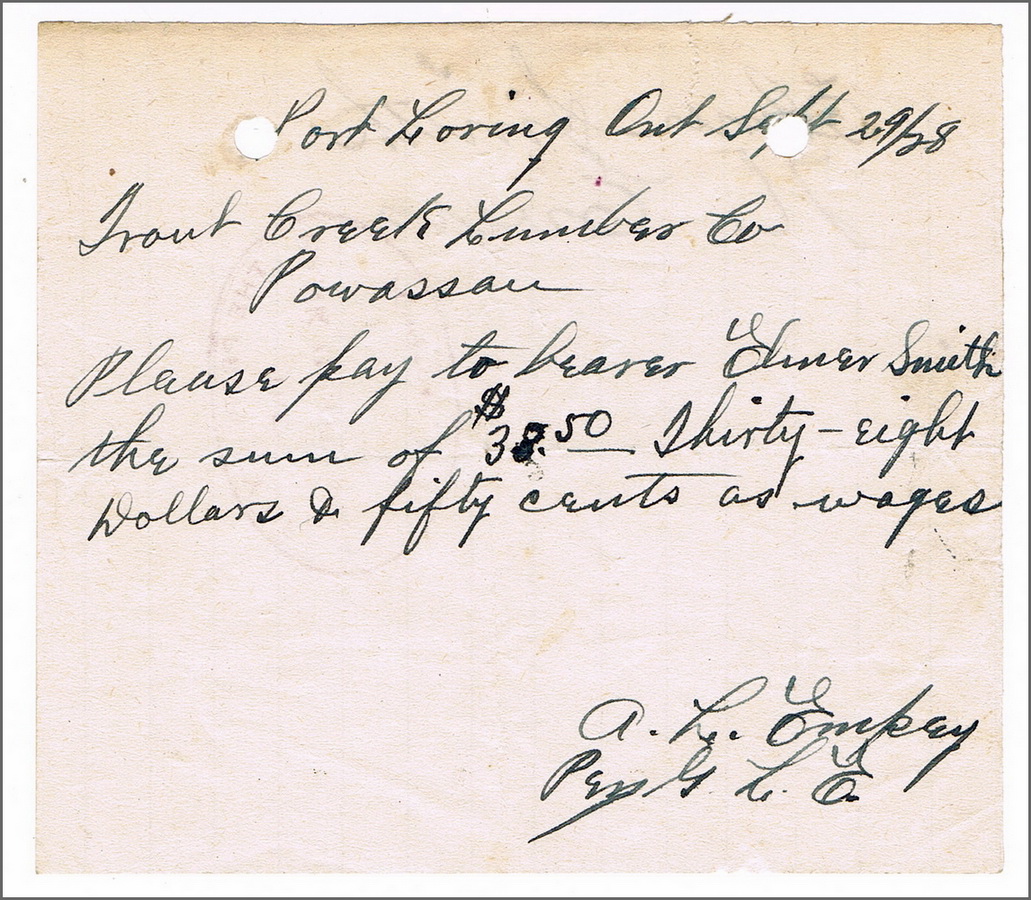 Port Loring Ont Sept 29/28
Trout Creek Lumber Co
Powassan
Please pay to bearer Elmer Smith
the sum of $38.50 Thirty-eight
Dollars & fifty cents as wages
A. L. Empey
Per G. L. E.